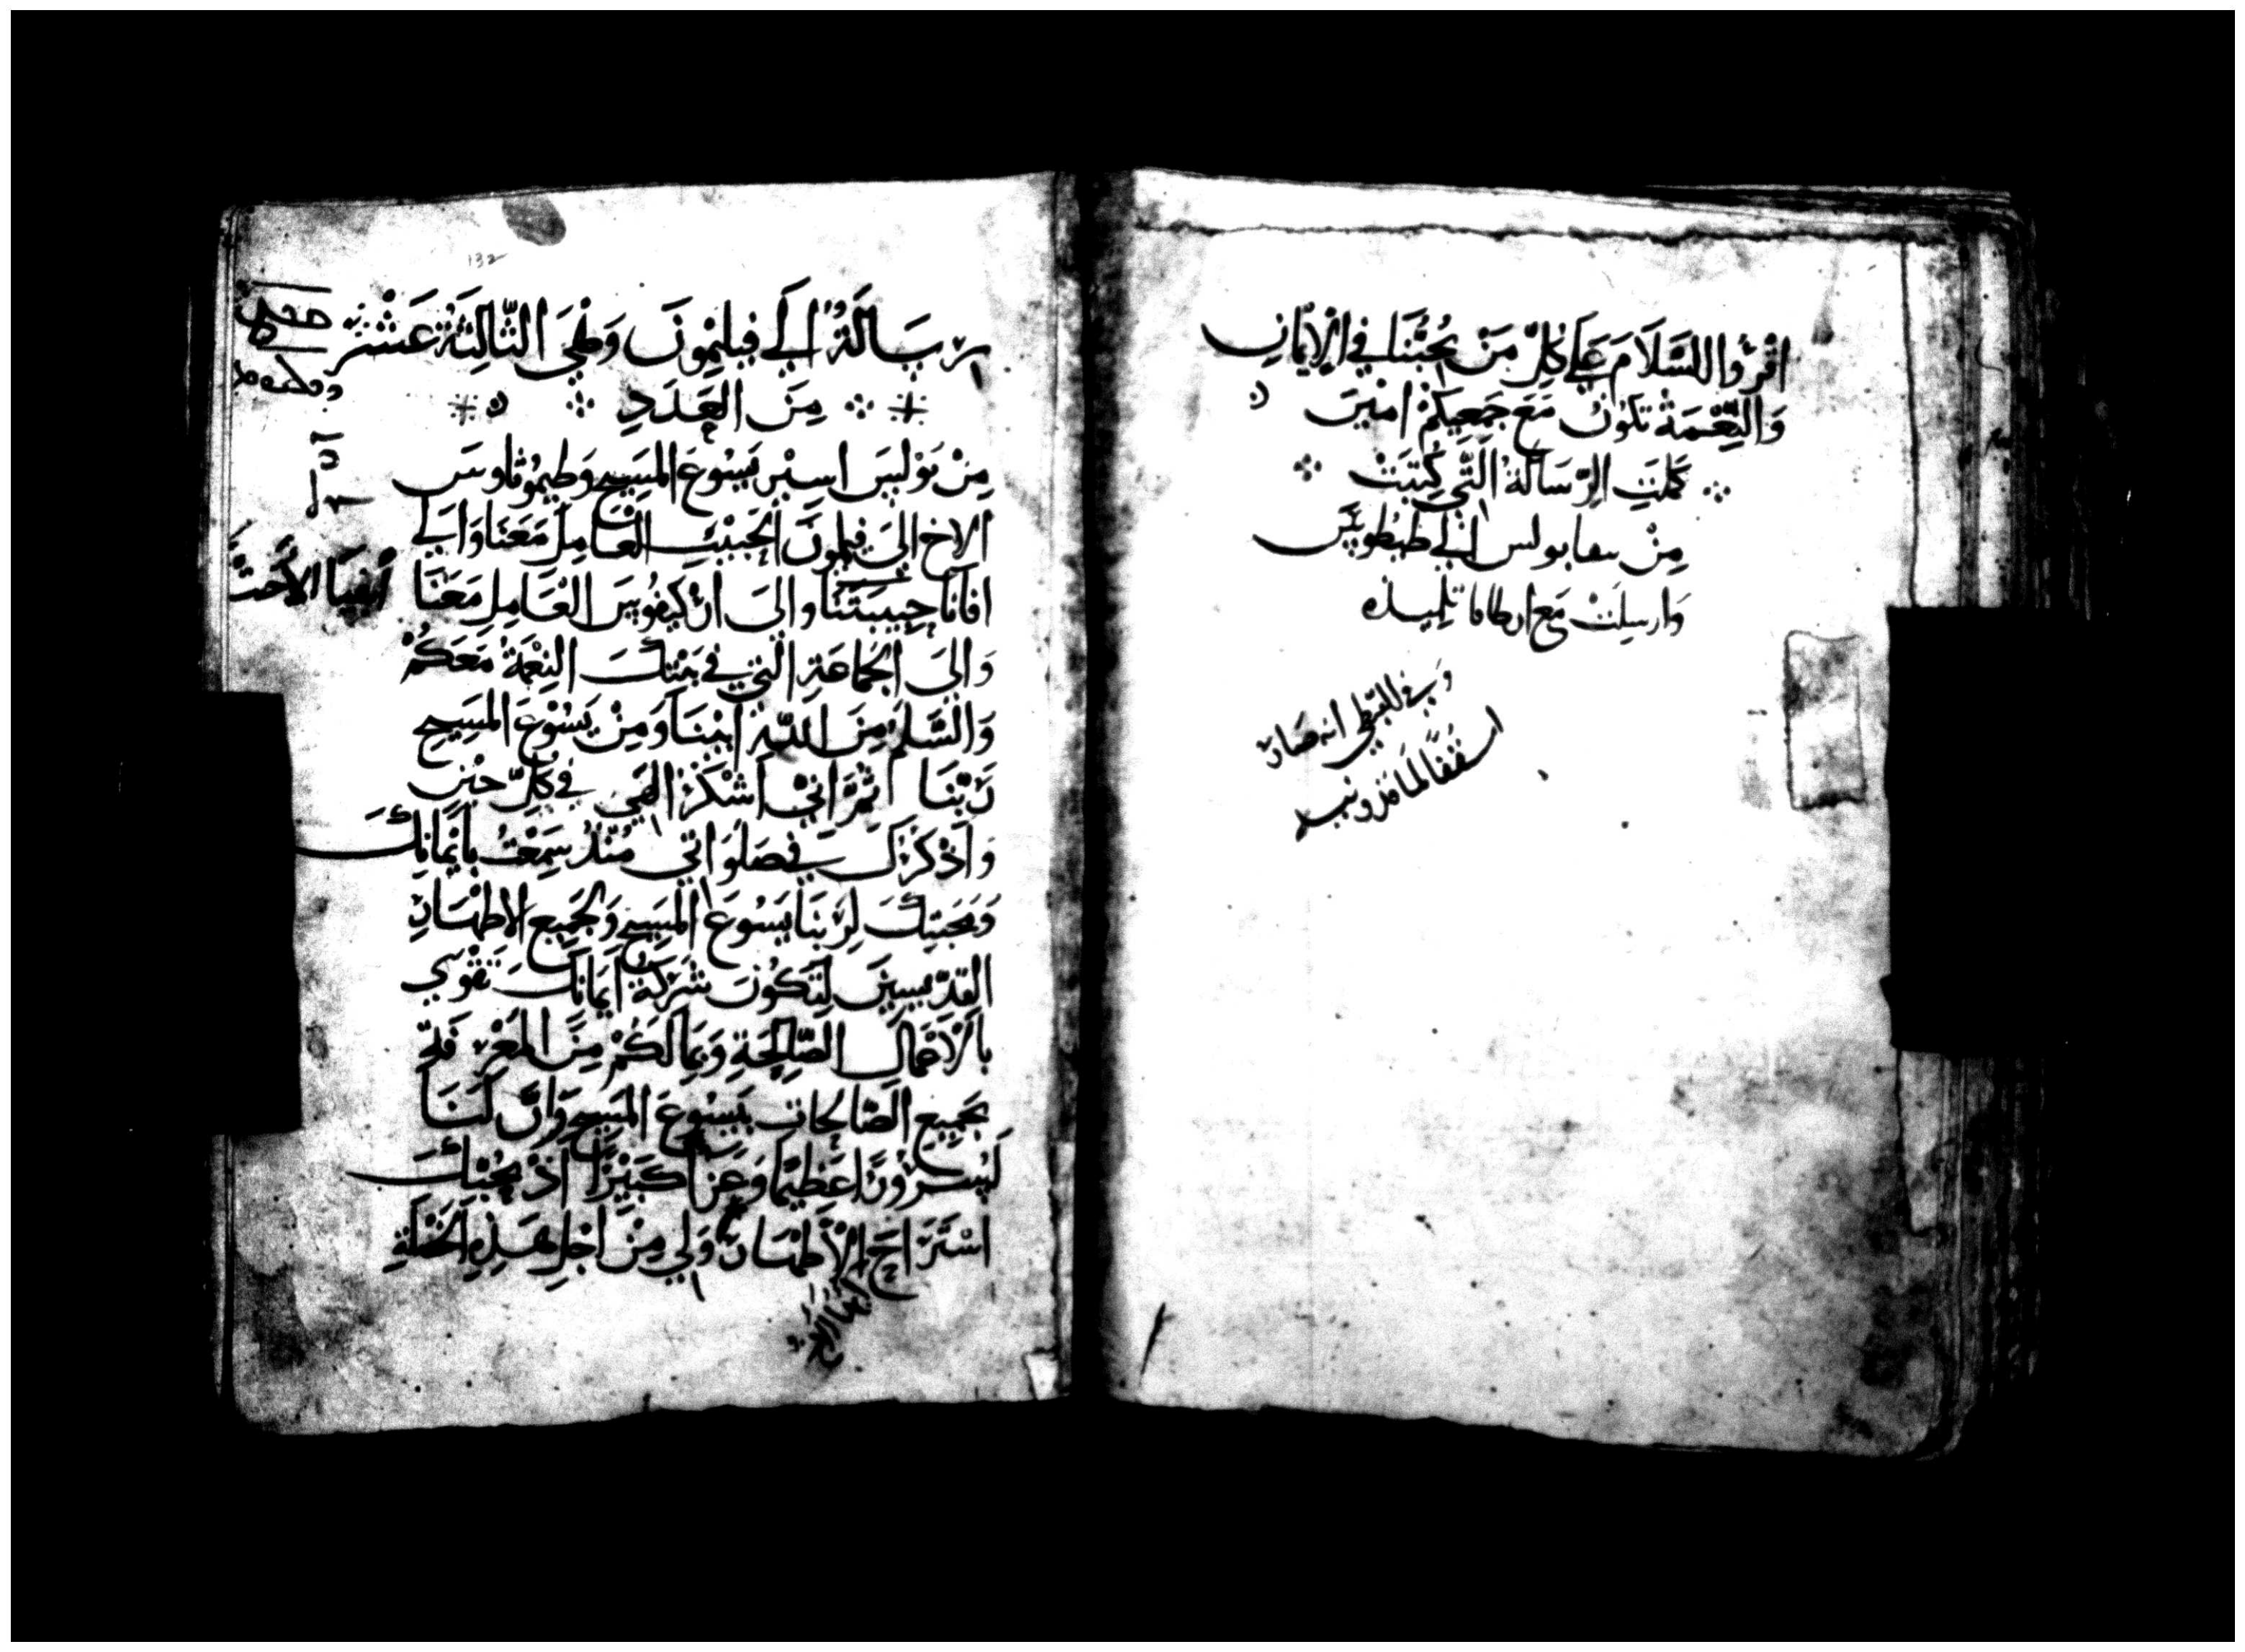 اقرؤا السَّلَامَ عَلَى كُلِّ مَنْ يُحِبُّنَا فِي الْإِيمَانِ
وَالنِّعْمَةُ تَكُونُ مَعَ جَمِيعِكُمْ امِينَ
كَمُلَتِ الرِّسَالَةُ الَّتِي كُتِبَتْ
مِنْ بولس إلى طيطوس
وَارسِلَتْ مَع ارطاما تلميذه
وَفي القبطي انه صَار
اسقفًا لماقذونيه
132
رِسَالَةُ إلَى فِيلِمُونَ وَهْيَ الثَّالِثَةُ عَشَرَ
مِنَ الْعَدَدِ
مِنْ بَوْلُسَ اسِيْر يَسُوْعَ المَسِيحِ وَطِيمُوثَاوسَ
الاخ إِلَيَ فيلمونَ الْحَبِيْبِ الْعَامِلِ مَعَنَا وَإلَى
افانَا حبِيبَتَنَا وَالَى ارْكِيفُوسَ الْعَامِلِ مَعَنَا
وَالَيَ الْجَمَاعَةِ الَّتِي فِي بَيْتِكَ النِعْمَةُ مَعَكُمْ
وَالسَّلَمُ مِنَ اللَّهِ أَبِيْنَا وَمِنْ يَسُوْعَ المَسِيحِ
رَبِّنَا ثُمَّ انِّي اشْكُرُ الهَي فِي كُلِّ حِيْنٍ
وَاذْكُرُكَ فِي صَلَوَاتِي مُنْذُ سَمِعْتُ بِايْمَانِكَ
وَمَحَبَتِكَ لِرَبِّنَا يَسُوعَ المَسِيحِ وَلِجَمِيعِ الاطْهَارِ
القِدِّيسِيْنَ لِتَكُونَ شَرِكَةُ ايْمَانِكَ تَقْوِي
بِالْأَعْمَالِ الصَّالِحَةِ وَبِمَا لَكُمْ مِنَ الْمَعْرِفَةِ
بِجَمِيعِ الصَّالِحَاتِ بِيَسُوعَ المَسِيحِ وَانَّ لَنَا
لَسُرُوْرًا عَظِيْمًا وَعِزًا كَبِيْرًا اذْ بِحُبِّكَ
اسْتَرَاحَ الْأَطْهَار وَلِي مِنْ اجْلِ هَذِهِ الْخَصْلَةِ